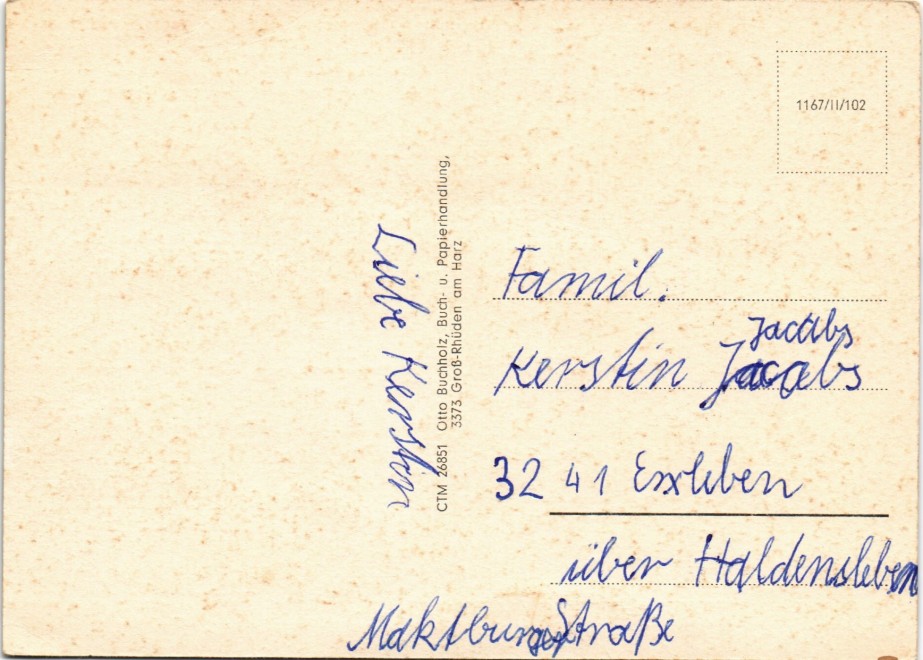 1167/II/102
CTM 26851 Otto Buchholz, Buch- u. Papierhandlung,
3373 Groß-Rhüden am Harz
Liebe Kerstin
Famil.
Jacobs
Kerstin Jacobs
3241 Erxleben
über Haldensleben
Maktburger Straße